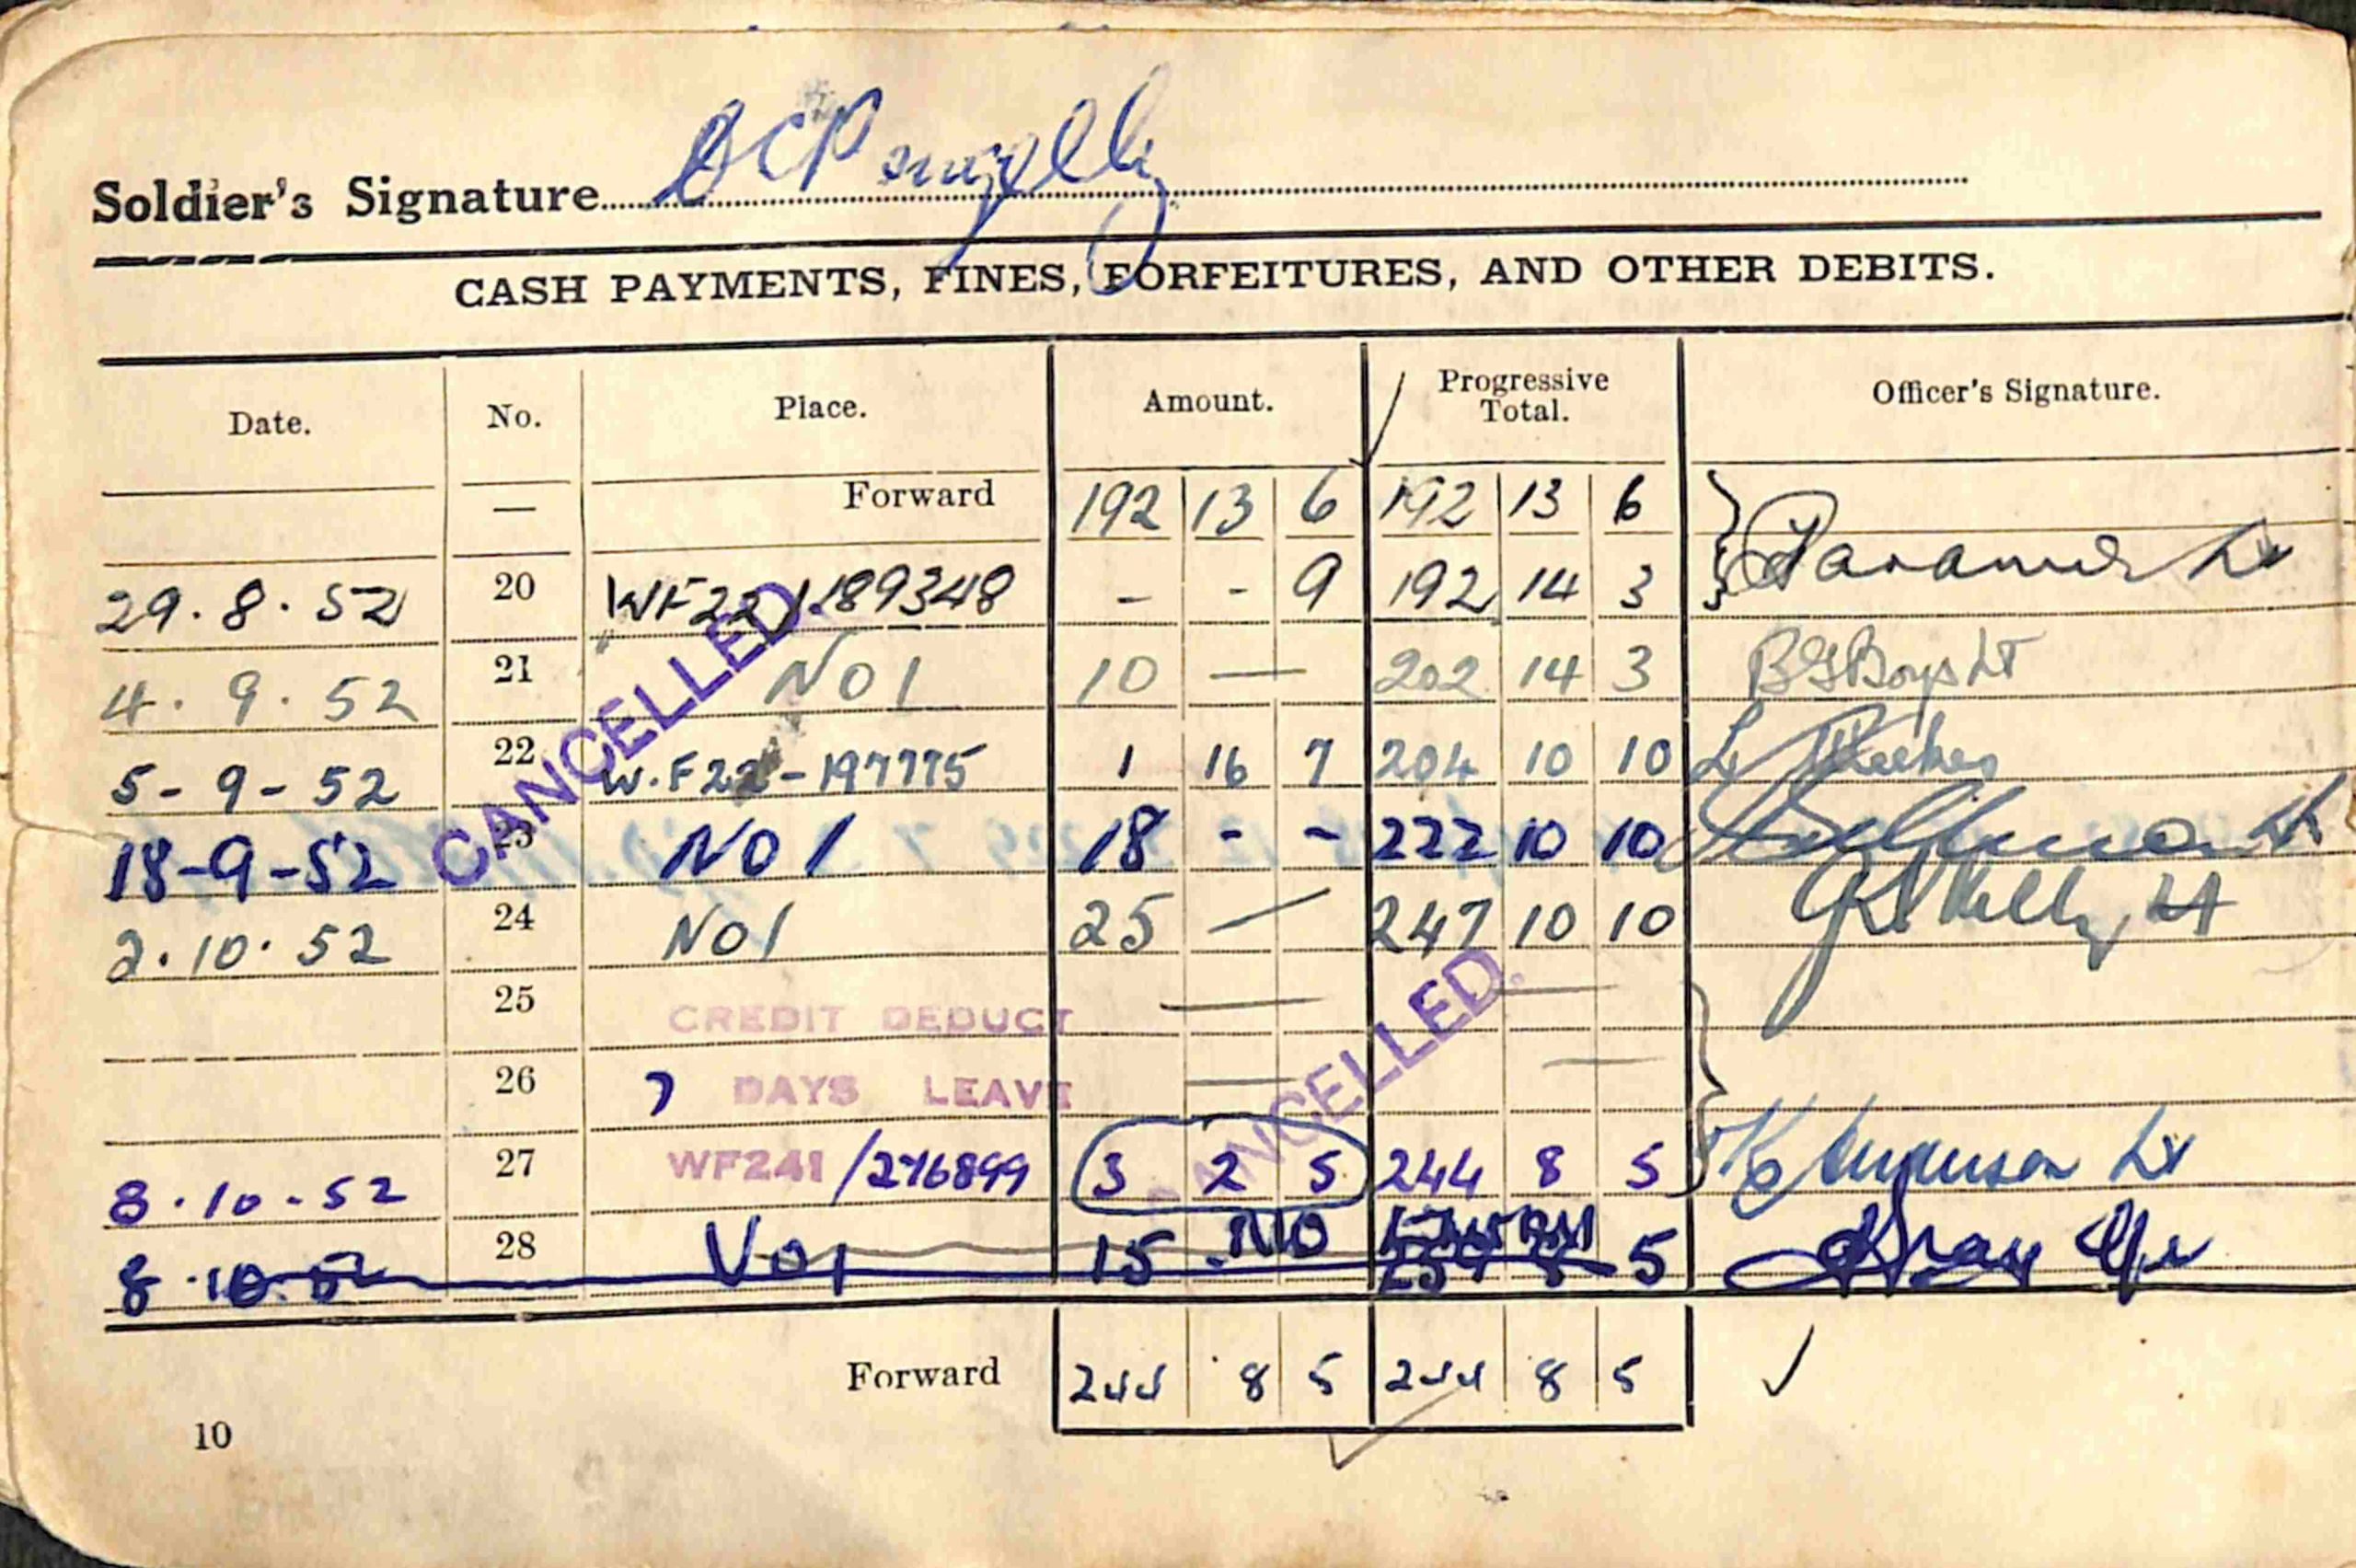 Soldier's Signature
CASH PAYMENTS, FINES, FORFEITURES, AND OTHER DEBITS.
Date. No. Place. Amount. Progressive Total. Officer's Signature.
— Forward 192 13 6 192 13 6
29.8.52 20 WF221/189348 - - 9 192 14 3 Lt
4.9.52 21 NO1 10 — 202 14 3 Lt
5-9-52 22 W.F22 - 197775 1 16 7 204 10 10 Lt
18-9-52 23 NO1 18 - - 222 10 10 Lt
2.10.52 24 NO1 25 — 247 10 10 Lt
25 CREDIT DEDUCT — —
26 7 DAYS LEAVE — —
8.10.52 27 WF241/276899 3 2 5 244 8 5 Lt
8.10.52 28 15 - 5
Forward 244 8 5 244 8 5
CANCELLED.
CANCELLED.
10